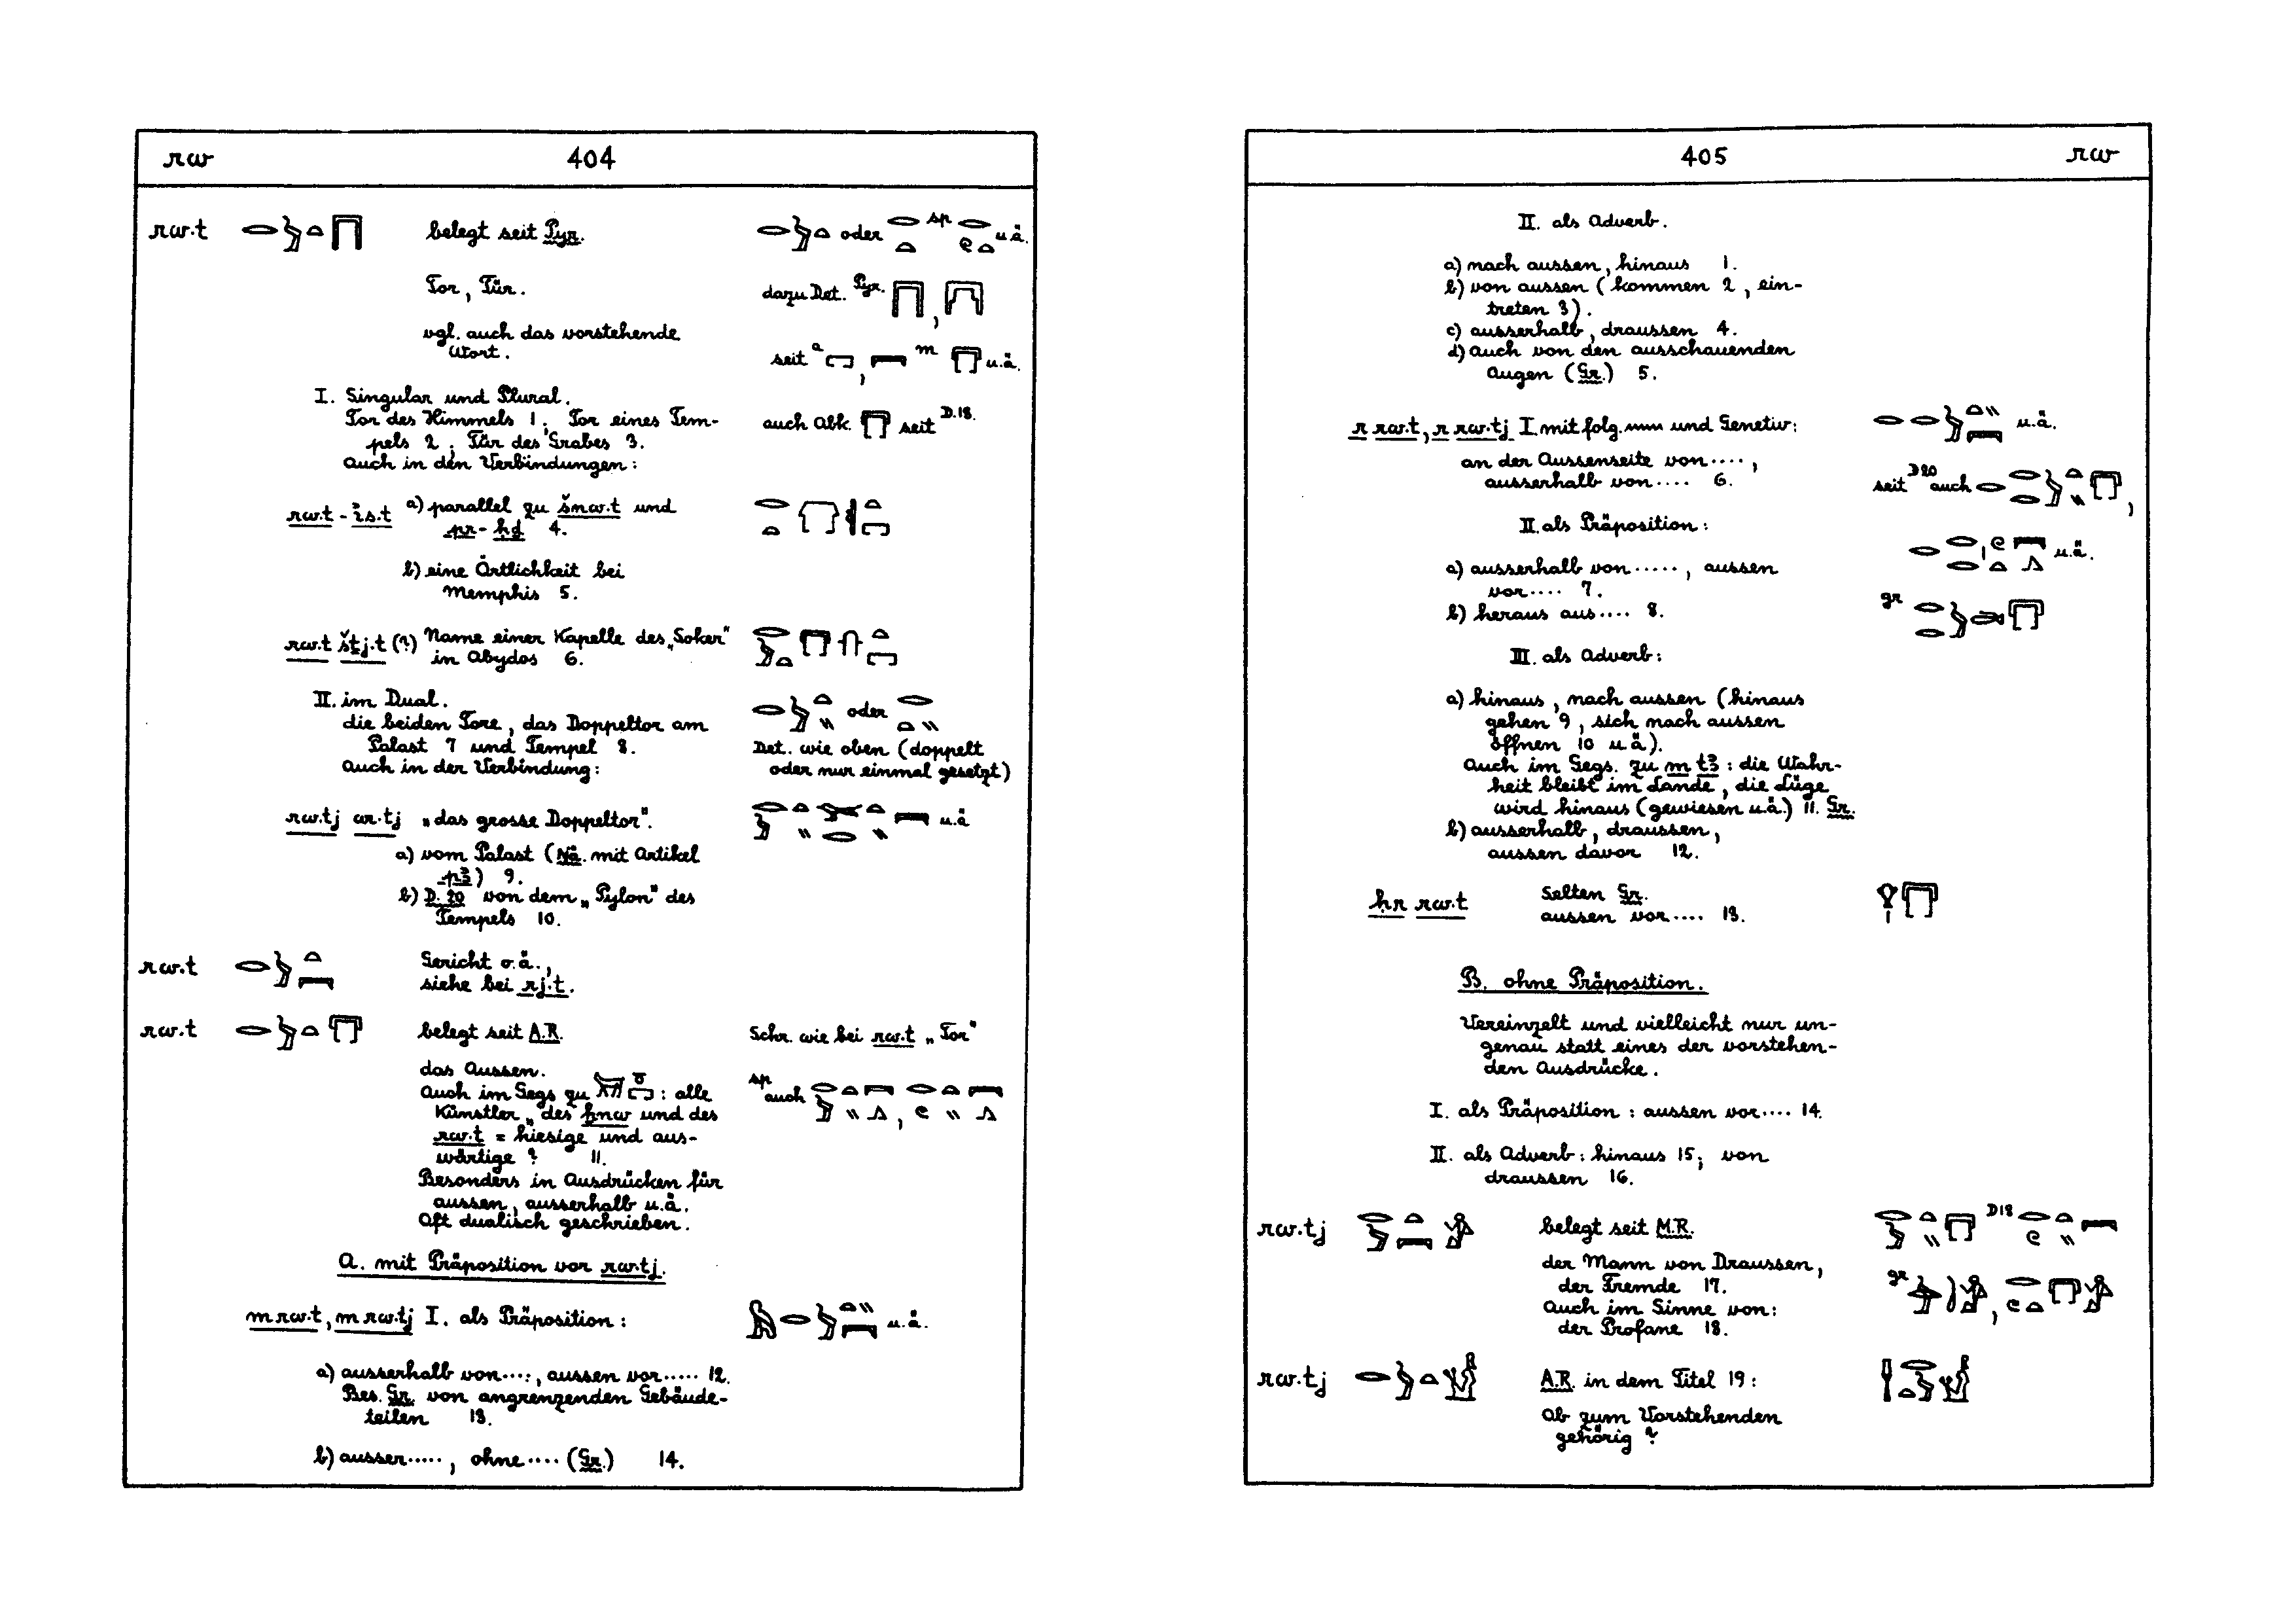 rw 404
rw.t belegt seit Pyr. oder sp u.ä.
Tor, Tür. dazu Det. Pyr. ,
vgl. auch das vorstehende
Wort. seit a , m u.ä.
I. Singular und Plural.
Tor des Himmels 1; Tor eines Tem-
pels 2; Tür des Grabes 3. auch Abk. seit D.18.
Auch in den Verbindungen:
rw.t - is.t a) parallel zu šnw.t und
pr-ḥḏ 4.
b) eine Örtlichkeit bei
Memphis 5.
rw.t štj.t (?) Name einer Kapelle des „Soker"
in Abydos 6.
II. im Dual. oder
die beiden Tore, das Doppeltor am
Palast 7 und Tempel 8. Det. wie oben (doppelt
Auch in der Verbindung: oder nur einmal gesetzt)
rw.tj wr.tj „das grosse Doppeltor". u.ä
a) vom Palast (Nä. mit Artikel
pꜣ) 9.
b) D. 20 von dem „Pylon" des
Tempels 10.
rw.t Gericht o.ä.,
siehe bei rj.t.
rw.t belegt seit A.R. Schr. wie bei rw.t „Tor"
das Aussen.
Auch im Gegs zu : alle sp auch ,
Künstler „des ẖnw und des
rw.t = hiesige und aus-
wärtige? 11.
Besonders in Ausdrücken für
aussen, ausserhalb u.ä.
Oft dualisch geschrieben.
A. mit Präposition vor rw.tj.
m rw.t, m rw.tj I. als Präposition: u.ä.
a) ausserhalb von....; aussen vor..... 12.
Bes. Gr. von angrenzenden Gebäude-
teilen 13.
b) ausser....., ohne.... (Gr.) 14.
405 rw
II. als Adverb.
a) nach aussen, hinaus 1.
b) von aussen (kommen 2, ein-
treten 3).
c) ausserhalb, draussen 4.
d) auch von den ausschauenden
Augen (Gr.) 5.
r rw.t, r rw.tj I. mit folg. und Genetiv: u.ä.
an der Aussenseite von....,
ausserhalb von.... 6. seit D20 auch ,
II. als Präposition: u.ä.
a) ausserhalb von....., aussen
vor.... 7.
b) heraus aus.... 8. gr
III. als Adverb:
a) hinaus, nach aussen (hinaus
gehen 9, sich nach aussen
öffnen 10 u.ä).
Auch im Gegs. zu m tꜣ: die Wahr-
heit bleibt im Lande, die Lüge
wird hinaus (gewiesen u.ä.) 11. Gr.
b) ausserhalb, draussen,
aussen davor 12.
ḥr rw.t Selten Gr.
aussen vor.... 13.
B. ohne Präposition.
Vereinzelt und vielleicht nur un-
genau statt eines der vorstehen-
den Ausdrücke.
I. als Präposition: aussen vor.... 14.
II. als Adverb: hinaus 15; von
draussen 16.
rw.tj belegt seit M.R. D18
der Mann von Draussen,
der Fremde 17. gr ,
Auch im Sinne von:
der Profane 18.
rw.tj A.R. in dem Titel 19:
Ob zum Vorstehenden
gehörig?